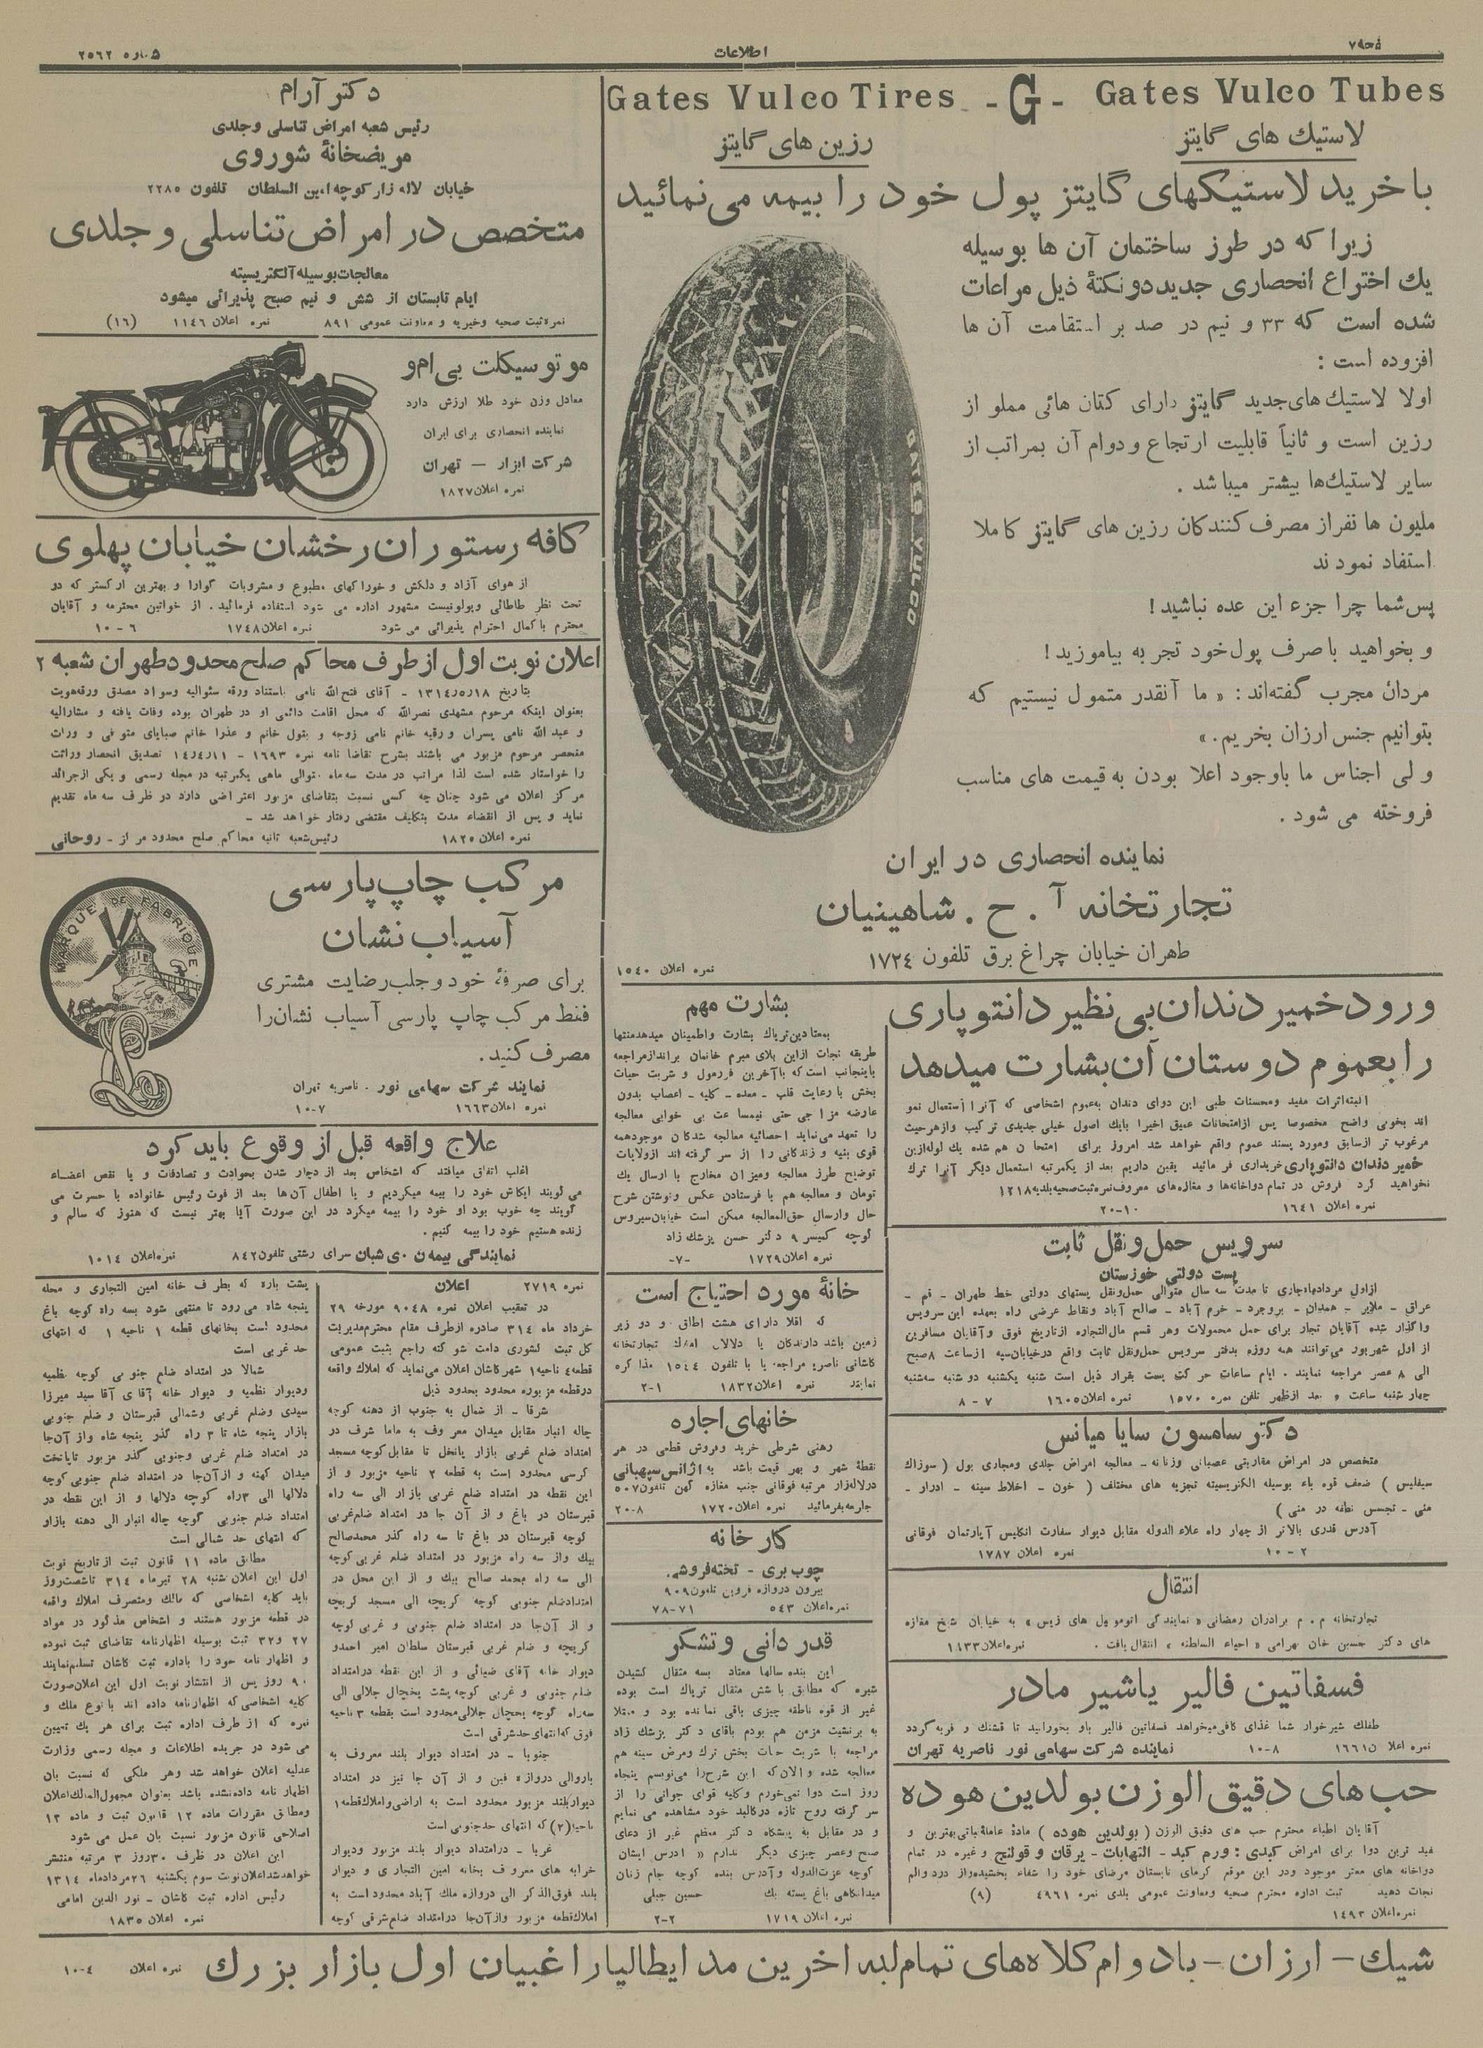 صفحه ۷
اطلاعات
شماره ۲۵۶۲
Gates Vulco Tires - G - Gates Vulco Tubes
لاستیك های گایتز
رزین های گایتز
با خرید لاستیکهای گایتز پول خود را بیمه می‌نمائید
زیرا که در طرز ساختمان آن ها بوسیله
یك اختراع انحصاری جدید دو نکتهٔ ذیل مراعات
شده است که ۳۳ و نیم در صد بر استقامت آن ها
افزوده است :
اولا لاستیك های جدید گایتز دارای کتان هائی مملو از
رزین است و ثانیاً قابلیت ارتجاع و دوام آن بمراتب از
سایر لاستیك‌ها بیشتر میباشد .
ملیون ها نفر از مصرف کنندگان رزین های گایتز کاملا
استفاد نمودند
پس شما چرا جزء این عده نباشید !
و بخواهید با صرف پول خود تجربه بیاموزید !
مردان مجرب گفته‌اند : « ما آنقدر متمول نیستیم که
بتوانیم جنس ارزان بخریم . »
ولی اجناس ما باوجود اعلا بودن به قیمت های مناسب
فروخته می شود .
GATES VULCO
نماینده انحصاری در ایران
تجارتخانه آ . ح . شاهینیان
طهران خیابان چراغ برق تلفون ۱۷۲۴
نمره اعلان ۱۵۴۰
ورود خمیر دندان بی نظیر دانتوپاری
را بعموم دوستان آن بشارت میدهد
البته اثرات مفید ومحسنات طبی این دوای دندان بعموم اشخاصی که آنرا استعمال نمو
اند بخوبی واضح مخصوصا پس از امتحانات عمیق اخیرا بایك اصول خیلی جدیدی ترکیب واز هر حیث
مرغوب تر از سابق ومورد پسند عموم واقع خواهد شد امروز برای امتحان هم شده یك لوله از این
خمیر دندان دانتوپاری خریداری فرمائید یقین داریم بعد از یکمرتبه استعمال دیگر آنرا ترك
نخواهید کرد فروش در تمام دواخانه‌ها و مغازه‌های معروف نمره ثبت صحیه بلدیه ۱۲۱۸
نمره اعلان ۱۶۴۱ ۲۰-۱۰
سرویس حمل و نقل ثابت
پست دولتی خوزستان
از اول مرداد ماه جاری تا مدت سه سال متوالی حمل و نقل پستهای دولتی خط طهران - قم -
عراق - ملایر - همدان - بروجرد - خرم آباد - صالح آباد ونقاط عرضی راه بعهده این سرویس
واگذار شده آقایان تجار برای حمل محمولات وهر قسم مال التجاره از تاریخ فوق وآقایان مسافرین
از اول شهریور می‌توانند همه روزه بدفتر سرویس حمل ونقل ثابت واقع در خیابان سپه از ساعت ۸ صبح
الی ۸ عصر مراجعه نمایند . ایام ساعات حرکت پست بقرار ذیل است شنبه یکشنبه دو شنبه سه شنبه
چهار شنبه ساعت بعد از ظهر تلفن نمره ۱۵۷۰ نمره اعلان ۱۶۰۵ ۷ - ۸
دکتر سامسون سایا میانس
متخصص در امراض مقاربتی عصبانی وزنانه - معالجه امراض جلدی ومجاری بول ( سوزاك
سیفلیس ) ضعف قوه باء بوسیله الکتریسیته تجزیه های مختلف ( خون - اخلاط سینه - ادرار -
منی - تجسس نطفه در منی )
آدرس قدری بالاتر از چهار راه علاء الدوله مقابل دیوار سفارت انگلیس آپارتمان فوقانی
۲ - ۱۰ نمره اعلان ۱۷۸۷
انتقال
تجارتخانه م . م برادران رمضانی « نمایندگی اتوموبیل های زیس » به خیابان شیخ مغازه
های دکتر حسین خان بهرامی « احیاء السلطنه » انتقال یافت . نمره اعلان ۱۸۳۳
فسفاتین فالیر یا شیر مادر
طفلك شیر خوار شما غذای کافی میخواهد فسفاتین فالیر باو بخورانید تا قشنك و فربه گردد
نمره اعلان ۱۶۶۱ ۸-۱۰ نماینده شرکت سهامی نور ناصریه تهران
حب های دقیق الوزن بولدین هوده
آقایان اطباء محترم حب های دقیق الوزن ( بولدین هوده ) مادهٔ عامله نباتی بهترین و
مفید ترین دوا برای امراض کبدی : ورم کبد - التهابات - یرقان و قولنج و غیره در تمام
دواخانه های معتبر موجود ودر این موقع گرمای تابستان مرضای خود را شفاء بخشیده از درد والم
نجات دهید ثبت اداره محترم صحیه ومعاونت عمومی بلدی نمره ۴۹۶۱ (۹)
نمره اعلان ۱۴۹۳
بشارت مهم
بمعتادین تریاك بشارت واطمینان میدهد منتها
طریقه نجات از این بلای مبرم خانمان برانداز مراجعه
باینجانب است که با آخرین فرمول و شربت حیات
بخش با رعایت قلب - معده - کلیه - اعصاب بدون
عارضه مزاجی حتی نیمساعت بی خوابی معالجه
را تعهد می‌نماید احصائیه معالجه شدگان موجود همه
قوی بنیه و زندگانی را از سر گرفته اند از ولایات
توضیح طرز معالجه ومیزان مخارج با ارسال یك
تومان و معالجه هم با فرستادن عکس ونوشتن شرح
حال وارسال حق المعالجه ممکن است خیابان سیروس
کوچه کمیسر ۹ دکتر حسن پزشك زاد
نمره اعلان ۱۷۲۹ -۷-
خانهٔ مورد احتیاج است
که اقلا دارای هشت اطاق و دو زیر
زمین باشد دارندگان یا دلالان املاك تجارتخانه
کاشانی ناصریه مراجعه یا با تلفون ۱۵۴۴ مذاکره
نمایند نمره اعلان ۱۸۳۲ ۱-۲
خانهای اجاره
رهنی شرطی خرید وفروش قطعی در هر
نقطهٔ شهر و بهر قیمت باشد به آژانس سپهبانی
در لاله زار مرتبه فوقانی جنب مغازه کهن تلفون ۵۰۷
مراجعه بفرمائید نمره اعلان ۱۷۲۰ ۸-۲۰
کارخانه
چوب بری - تخته فروشی
بیرون دروازه قزوین تلفون ۹۰۹
نمره اعلان ۵۴۳ ۷۱-۷۸
قدر دانی و تشکر
این بنده سالها معتاد بسه مثقال کشیدن
شیره که مطابق با شش مثقال تریاك است بوده
غیر از قوه ناطقه چیزی باقی نمانده بود و مبتلا
به برنشیت مزمن هم بودم باقای دکتر پزشك زاد
مراجعه با شربت حیات بخش ترك ومرض سینه هم
معالجه شده والان که این شرح را می‌نویسم پنجاه
روز است دوا نمی‌خورم وکلیه قوای جوانی را از
سر گرفته روح تازه در کالبد خود مشاهده می نمایم
و در مقابل به پیشگاه دکتر معظم غیر از دعای
صبح وعصر چیزی دیگر ندارم « آدرس ایشان
کوچه عزت الدوله وآدرس بنده کوچه جام زنان
میدانگاهی باغ پسته بك حسین جبلی
نمره اعلان ۱۷۱۹ ۲-۲
دکتر آرام
رئیس شعبه امراض تناسلی وجلدی
مریضخانهٔ شوروی
خیابان لاله زار کوچه امین السلطان تلفون ۲۲۸۵
متخصص در امراض تناسلی و جلدی
معالجات بوسیله الکتریسیته
ایام تابستان از شش و نیم صبح پذیرائی میشود
نمره ثبت صحیه وخیریه و معاونت عمومی ۸۹۱ نمره اعلان ۱۱۴۶ (۱۶)
موتوسیکلت بی‌ام‌و
معادل وزن خود طلا ارزش دارد
نماینده انحصاری برای ایران
شرکت ابزار - تهران
نمره اعلان ۱۸۲۷
کافه رستوران رخشان خیابان پهلوی
از هوای آزاد و دلکش و خوراکهای مطبوع و مشروبات گوارا و بهترین ارکستر که دو
تحت نظر طاطائی ویولونیست مشهور اداره می شود استفاده فرمائید . از خواتین محترمه و آقایان
محترم با کمال احترام پذیرائی می شود نمره اعلان ۱۷۴۸ ۶ - ۱۰
اعلان نوبت اول از طرف محاکم صلح محدود طهران شعبه ۲
بتاریخ ۱۸ر۵ر۱۳۱۴ - آقای فتح الله نامی باستناد ورقه سئوالیه وسواد مصدق ورقه هویت
بعنوان اینکه مرحوم مشهدی نصرالله که محل اقامت دائمی او در طهران بوده وفات یافته و مشارالیه
و عبد الله نامی پسران و رقیه خانم نامی زوجه و بتول خانم و عذرا خانم صبایای متوفی و وراث
منحصر مرحوم مزبور می باشند بشرح تقاضا نامه نمره ۱۶۹۳ - ۱۱ر۴ر۱۴ تصدیق انحصار وراثت
را خواستار شده است لذا مراتب در مدت سه ماه متوالی ماهی یکمرتبه در مجله رسمی و یکی از جرائد
مرکز اعلان می شود چنان چه کسی نسبت بتقاضای مزبور اعتراضی دارد در ظرف سه ماه تقدیم
نماید و پس از انقضاء مدت بتکلیف مقتضی رفتار خواهد شد -
نمره اعلان ۱۸۲۵ رئیس شعبه ثانیه محاکم صلح محدود مرکز - روحانی
مرکب چاپ پارسی
آسیاب نشان
MARQUE DE FABRIQUE
برای صرفهٔ خود و جلب رضایت مشتری
فقط مرکب چاپ پارسی آسیاب نشان را
مصرف کنید .
نمایند شرکت سهامی نور . ناصریه تهران
نمره اعلان ۱۶۶۳ ۷-۱۰
علاج واقعه قبل از وقوع باید کرد
اغلب اتفاق میافتد که اشخاص بعد از دچار شدن بحوادث و تصادفات و یا نقص اعضاء
می گویند ایکاش خود را بیمه میکردیم و یا اطفال آن‌ها بعد از فوت رئیس خانواده با حسرت می
گویند چه خوب بود او خود را بیمه میکرد در این صورت آیا بهتر نیست که هنوز که سالم و
زنده هستیم خود را بیمه کنیم .
نمایندگی بیمه ن . ی شبان سرای رشتی تلفون ۸۴۲ نمره اعلان ۱۰۱۴
نمره ۲۷۱۹ اعلان
در تعقیب اعلان نمره ۹۰۴۸ مورخه ۲۹
خرداد ماه ۳۱۴ صادره از طرف مقام محترم مدیریت
کل ثبت کشوری دامت شوکته راجع بثبت عمومی
قطعه ۴ ناحیه ۱ شهر کاشان اعلان می‌نماید که املاك واقعه
در قطعه مزبوره محدود بحدود ذیل
شرقا - از شمال به جنوب از دهنه کوچه
چاله انبار مقابل میدان معروف به ماما شرف در
امتداد ضلع غربی بازار پانخل تا مقابل کوچه مسجد
کرسی محدود است به قطعه ۲ ناحیه مزبور و از
این نقطه در امتداد ضلع غربی بازار الی سه راه
قبرستان در باغ و از آن جا در امتداد ضلع غربی
کوچه قبرستان در باغ تا سه راه گذر محمد صالح
بیك واز سه راه مزبور در امتداد ضلع غربی کوچه
الی سه راه محمد صالح بیك و از این محل در
امتداد ضلع جنوبی کوچه کریچه الی مسجد کریچه
و از آن‌جا در امتداد ضلع جنوبی و غربی کوچه
کریچه و ضلع غربی قبرستان سلطان امیر احمد و
دیوار خانه آقای ضیائی و از این نقطه در امتداد
ضلع جنوبی و غربی کوچه پشت یخچال جلالی الی
سه راه کوچه یخچال جلالی محدود است بقطعه ۳ ناحیه
فوق که انتهای حد شرقی است
جنوبا - در امتداد دیوار بلند معروف به
باروالی دروازه فین و از آن جا نیز در امتداد
دیوار بلند مزبور محدود است به اراضی واملاك قطعه ۱
ناحیه (۲) که انتهای حد جنوبی است
غربا - در امتداد دیوار بلند مزبور ودیوار
خرابه های معروف بخانه امین التجاری و دیوار
بلند فوق الذکر الی دروازه ملك آباد محدود است به
املاك قطعه مزبور واز آن‌جا در امتداد ضلع شرقی کوچه
پشت باره که بطرف خانه امین التجاری و محله
پنجه شاه می‌رود تا منتهی شود بسه راه کوچه باغ
محدود است بخانهای قطعه ۱ ناحیه ۱ که انتهای
حد غربی است
شمالا در امتداد ضلع جنوبی کوچه نظمیه
ودیوار نظمیه و دیوار خانه آقای آقا سید میرزا
سیدی وضلع غربی وشمالی قبرستان و ضلع جنوبی
بازار پنجه شاه تا ۳ راه گذر پنجه شاه واز آن‌جا
در امتداد ضلع غربی وجنوبی گذر مزبور تا پاتخت
میدان کهنه و از آن‌جا در امتداد ضلع جنوبی کوچه
دلالها الی ۳ راه کوچه دلالها و از این نقطه در
امتداد ضلع جنوبی کوچه چاله انبار الی دهنه بازار
که انتهای حد شمالی است
مطابق ماده ۱۱ قانون ثبت از تاریخ نوبت
اول این اعلان شنبه ۲۸ تیر ماه ۳۱۴ تا شصت روز
باید کلیه اشخاصی که مالك ومتصرف املاك واقعه
در قطعه مزبور هستند و اشخاص مذکور در مواد
۲۷ و ۳۲ ثبت بوسیله اظهارنامه تقاضای ثبت نموده
و اظهار نامه خود را باداره ثبت کاشان تسلیم نمایند
۹۰ روز پس از انتشار نوبت اول این اعلان صورت
کلیه اشخاصی که اظهارنامه داده اند با نوع ملك و
نمره که از طرف اداره ثبت برای هر یك تعیین
می شود در جریده اطلاعات و مجله رسمی وزارت
عدلیه اعلان خواهد شد وهر ملکی که نسبت بان
اظهار نامه داده نشده باشد بعنوان مجهول المالك اعلان
ومطابق مقررات ماده ۱۲ قانون ثبت و ماده ۱۳
اصلاحی قانون مزبور نسبت بان عمل می شود
این اعلان در ظرف ۳۰ روز ۳ مرتبه منتشر
خواهد شد اعلان نوبت سوم یکشنبه ۲۶ مرداد ماه ۱۳۱۴
رئیس اداره ثبت کاشان - نور الدین امامی
نمره اعلان ۱۸۳۵
شیك - ارزان - بادوام کلاه‌های تمام لبه اخرین مد ایطالیا راغبیان اول بازار بزرك نمره اعلان ۴-۱۰